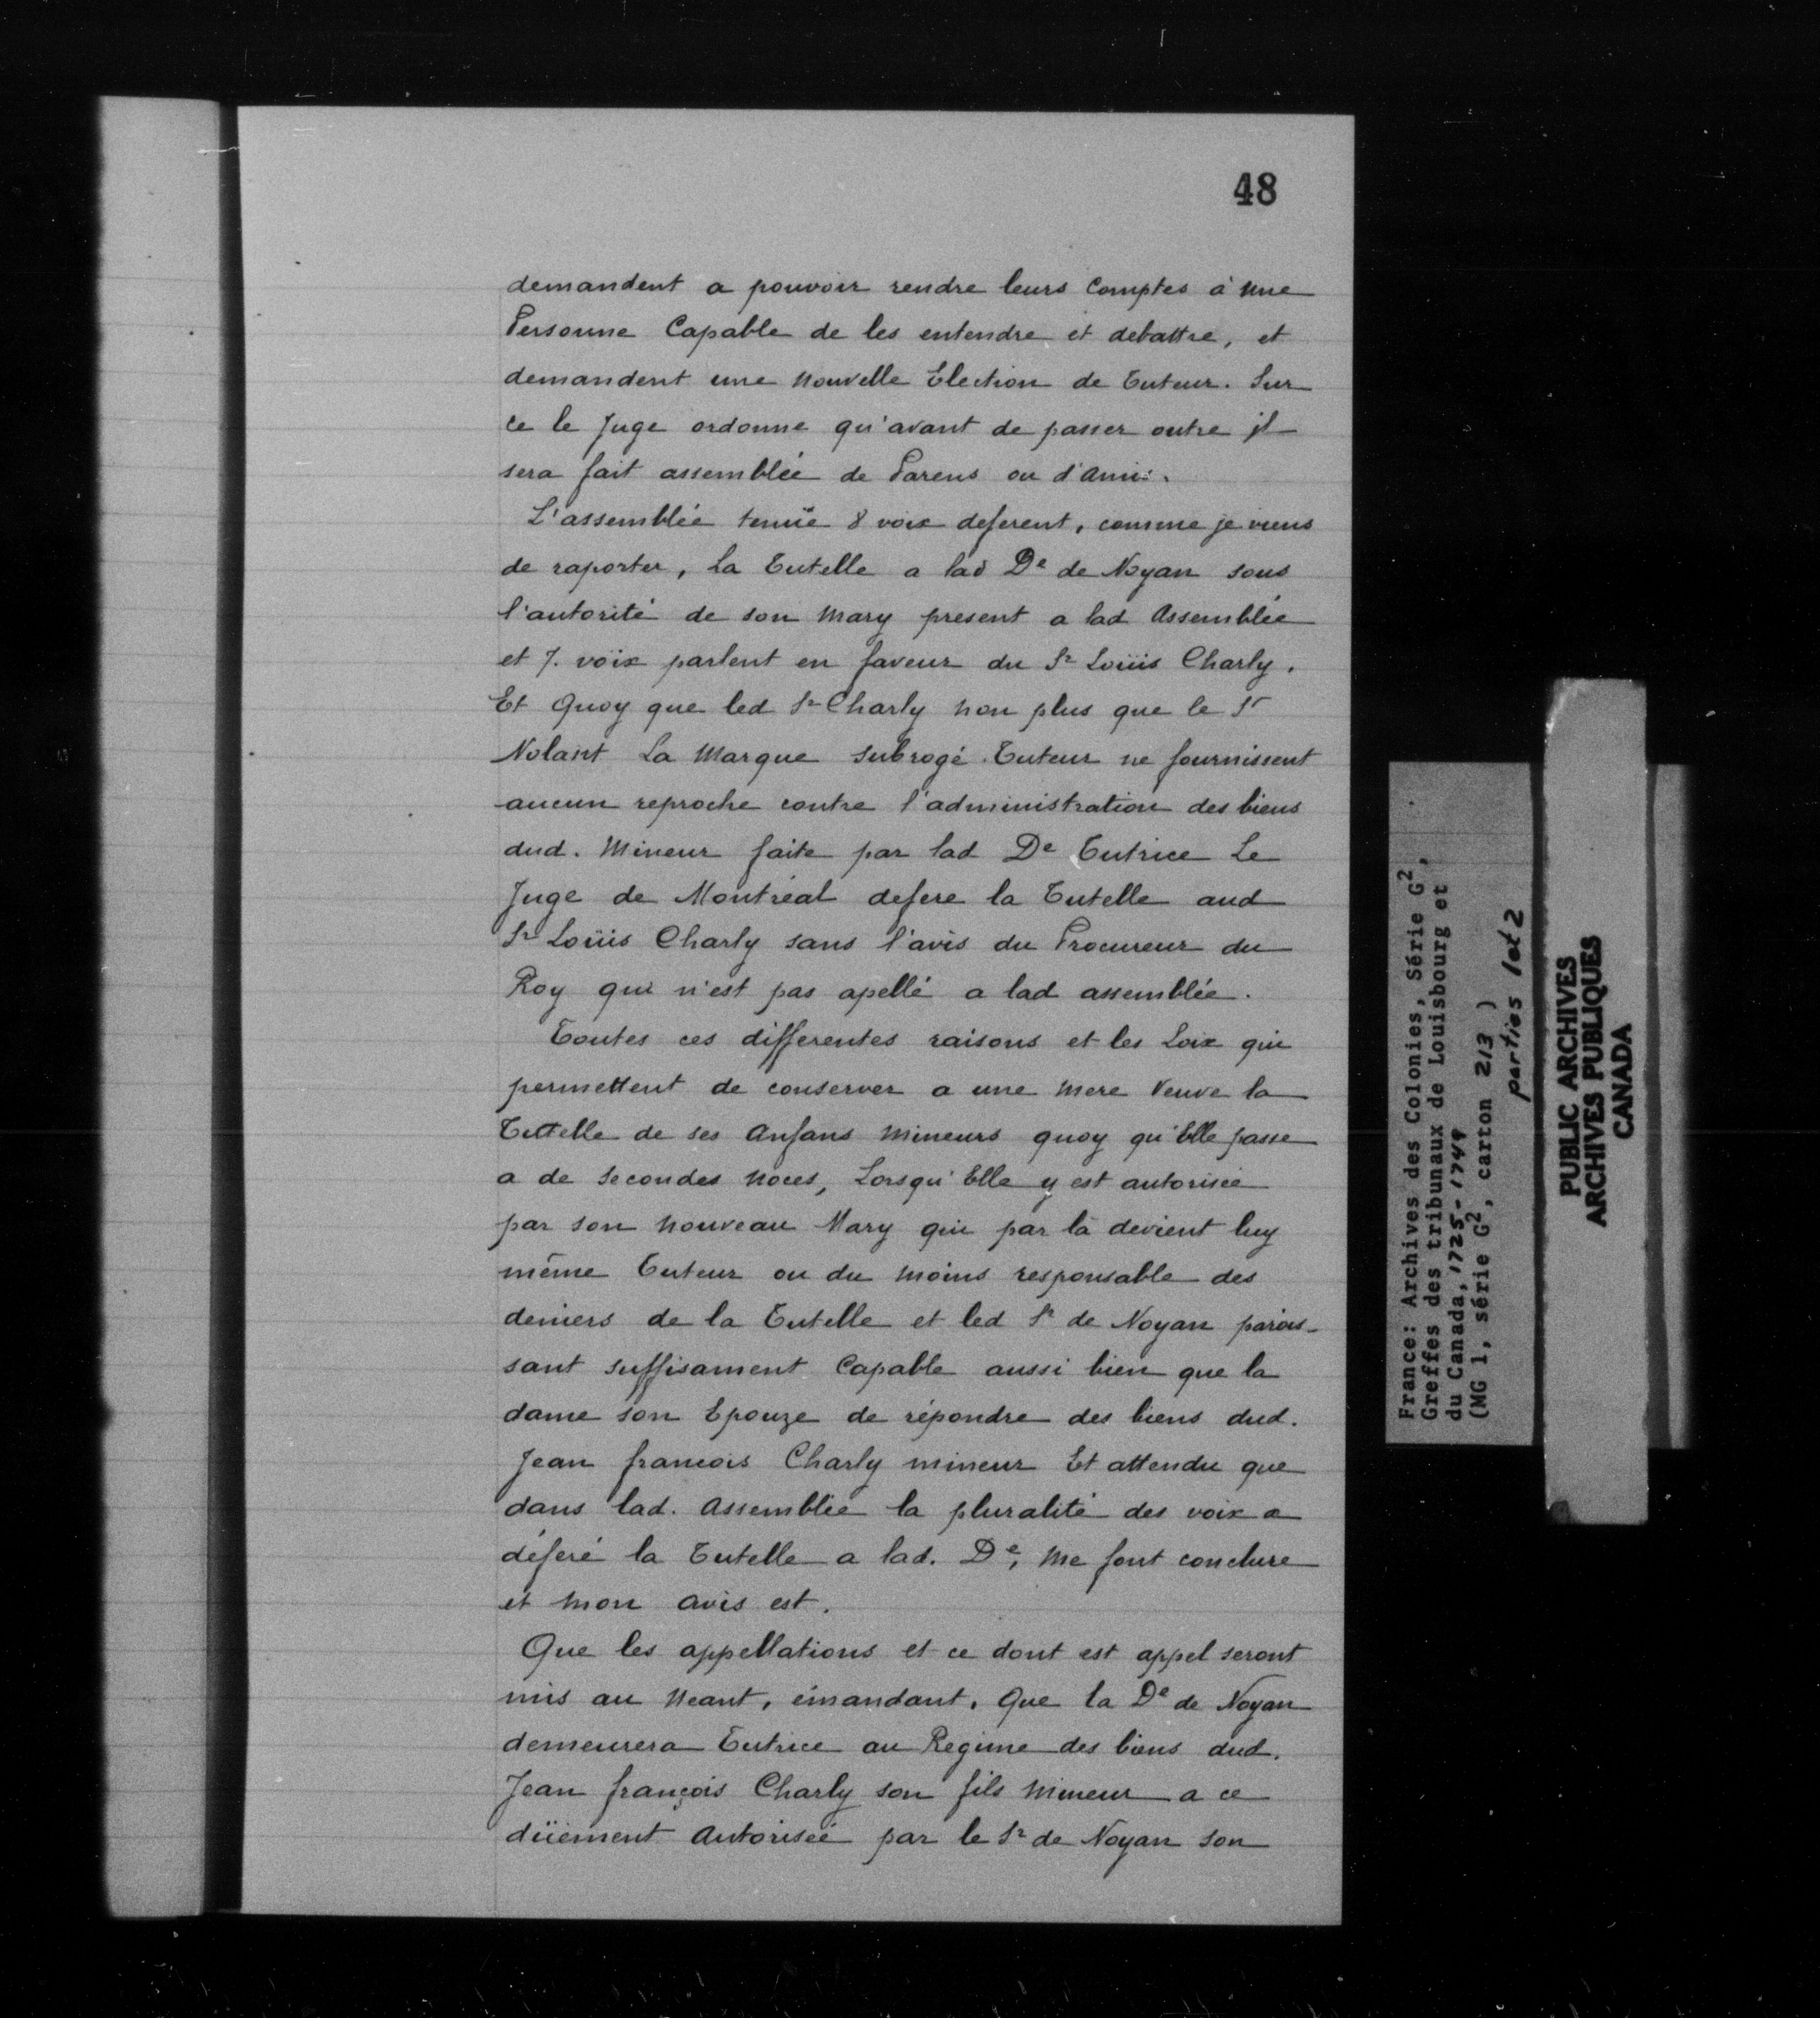 48
demandent a pouvoir rendre leurs Comptes à Une
Personne Capable de les entendre et debattre, et
demandent une Nouvelle Election de Tuteur. Sur
ce le Juge ordonne qu'avant de passer outre jl
sera fait assemblée de Parens ou d'Amis.
L'assemblée tenuë 8 voix deferent, comme je viens
de raporter, La Tutelle a lad De de Noyan sous
l'autorité de son Mary present a lad Assemblée
et 7. voix parlent en faveur du Sr Loüis Charly.
Et Quoy que led Sr Charly non plus que le Sr
Nolant La Marque Subrogé Tuteur ne fournissent
aucun reproche contre l'administration des biens
dud. Mineur faite par lad De Tutrice Le
Juge de Montréal defere la Tutelle aud
Sr Loüis Charly sans l'avis du Procureur du
Roy qui n'est pas apellé a lad assemblée.
Toutes ces differentes raisons et les Loix qui
permettent de conserver a une Mere Veuve la
Tuttelle de ses Anfans Mineurs quoy qu'Elle passe
a de Secondes Noces, Lorsqu'Elle y est autorisée
par son Nouveau Mary qui par là devient luy
même Tuteur ou du Moins responsable des
deniers de la Tutelle et led Sr de Noyan parois-
sant suffisament Capable aussi bien que la
dame son Epouze de répondre des biens dud.
Jean francois Charly mineur Et attendu que
dans lad. Assemblée la pluralité des voix a
déferé la Tutelle a lad. De, Me font conclure
et Mon avis est.
Que les appellations et ce dont est appel seront
mis au Neant, émandant, Que la De de Noyan
demeurera Tutrice au Regime des biens dud.
Jean françois Charly son fils Mineur a ce
düement Autorisée par le Sr de Noyan son
France: Archives des Colonies, Série G2,
Greffes des tribunaux de Louisbourg et
du Canada, 1725-1749
(MG 1, série G2, carton 213 )
parties 1 et 2
PUBLIC ARCHIVES
ARCHIVES PUBLIQUES
CANADA